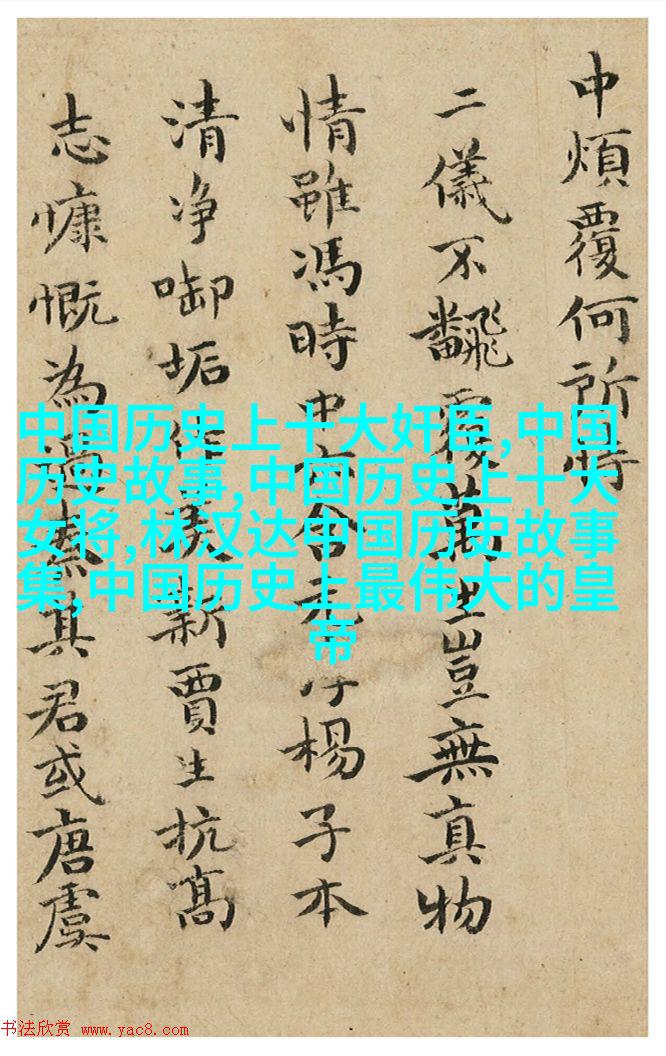 中煩覆何所恃
二儀不飜覆萬生豈無真物
情雖馮時中合楊子本
清净啣垢新賈生抗髙
志慷慨為其君或唐虞
中国历史上十大奸臣,中国
历史故事,中国历史上十大
女将,林汉达中国历史故事
集,中国历史上最伟大的皇
帝
书法欣赏 www.yac8.com